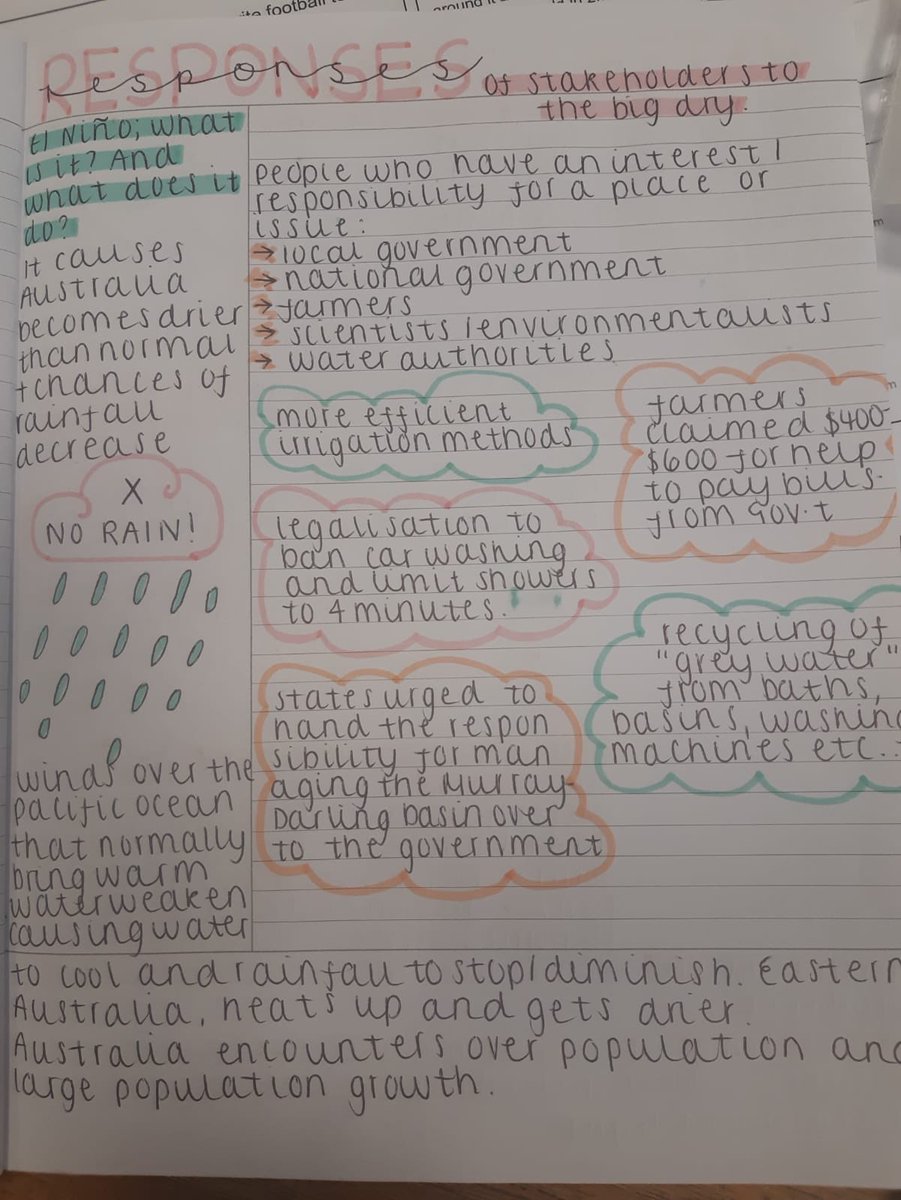 ite football
around
RESPONSES
responses of stakeholders to
the big dry.
El Niño; what
is it? And
what does it
do?
It causes
Australia
becomes drier
than normal
+ chances of
rainfall
decrease
X
NO RAIN!
winds over the
pacific ocean
that normally
bring warm
water weaken
causing water
to cool and rainfall to stop/diminish. Eastern
Australia, heats up and gets drier.
Australia encounters over population and
large population growth.
people who have an interest /
responsibility for a place or
issue:
→ local government
→ national government
→ farmers
→ scientists / environmentalists
→ water authorities
more efficient
irrigation methods
farmers
claimed $400-
$600 for help
to pay bills.
from Gov.t
legalisation to
ban car washing
and limit showers
to 4 minutes.
recycling of
"grey water"
from baths,
basins, washing
machines etc...
states urged to
hand the respon
sibility for man
aging the Murray-
Darling basin over
to the government